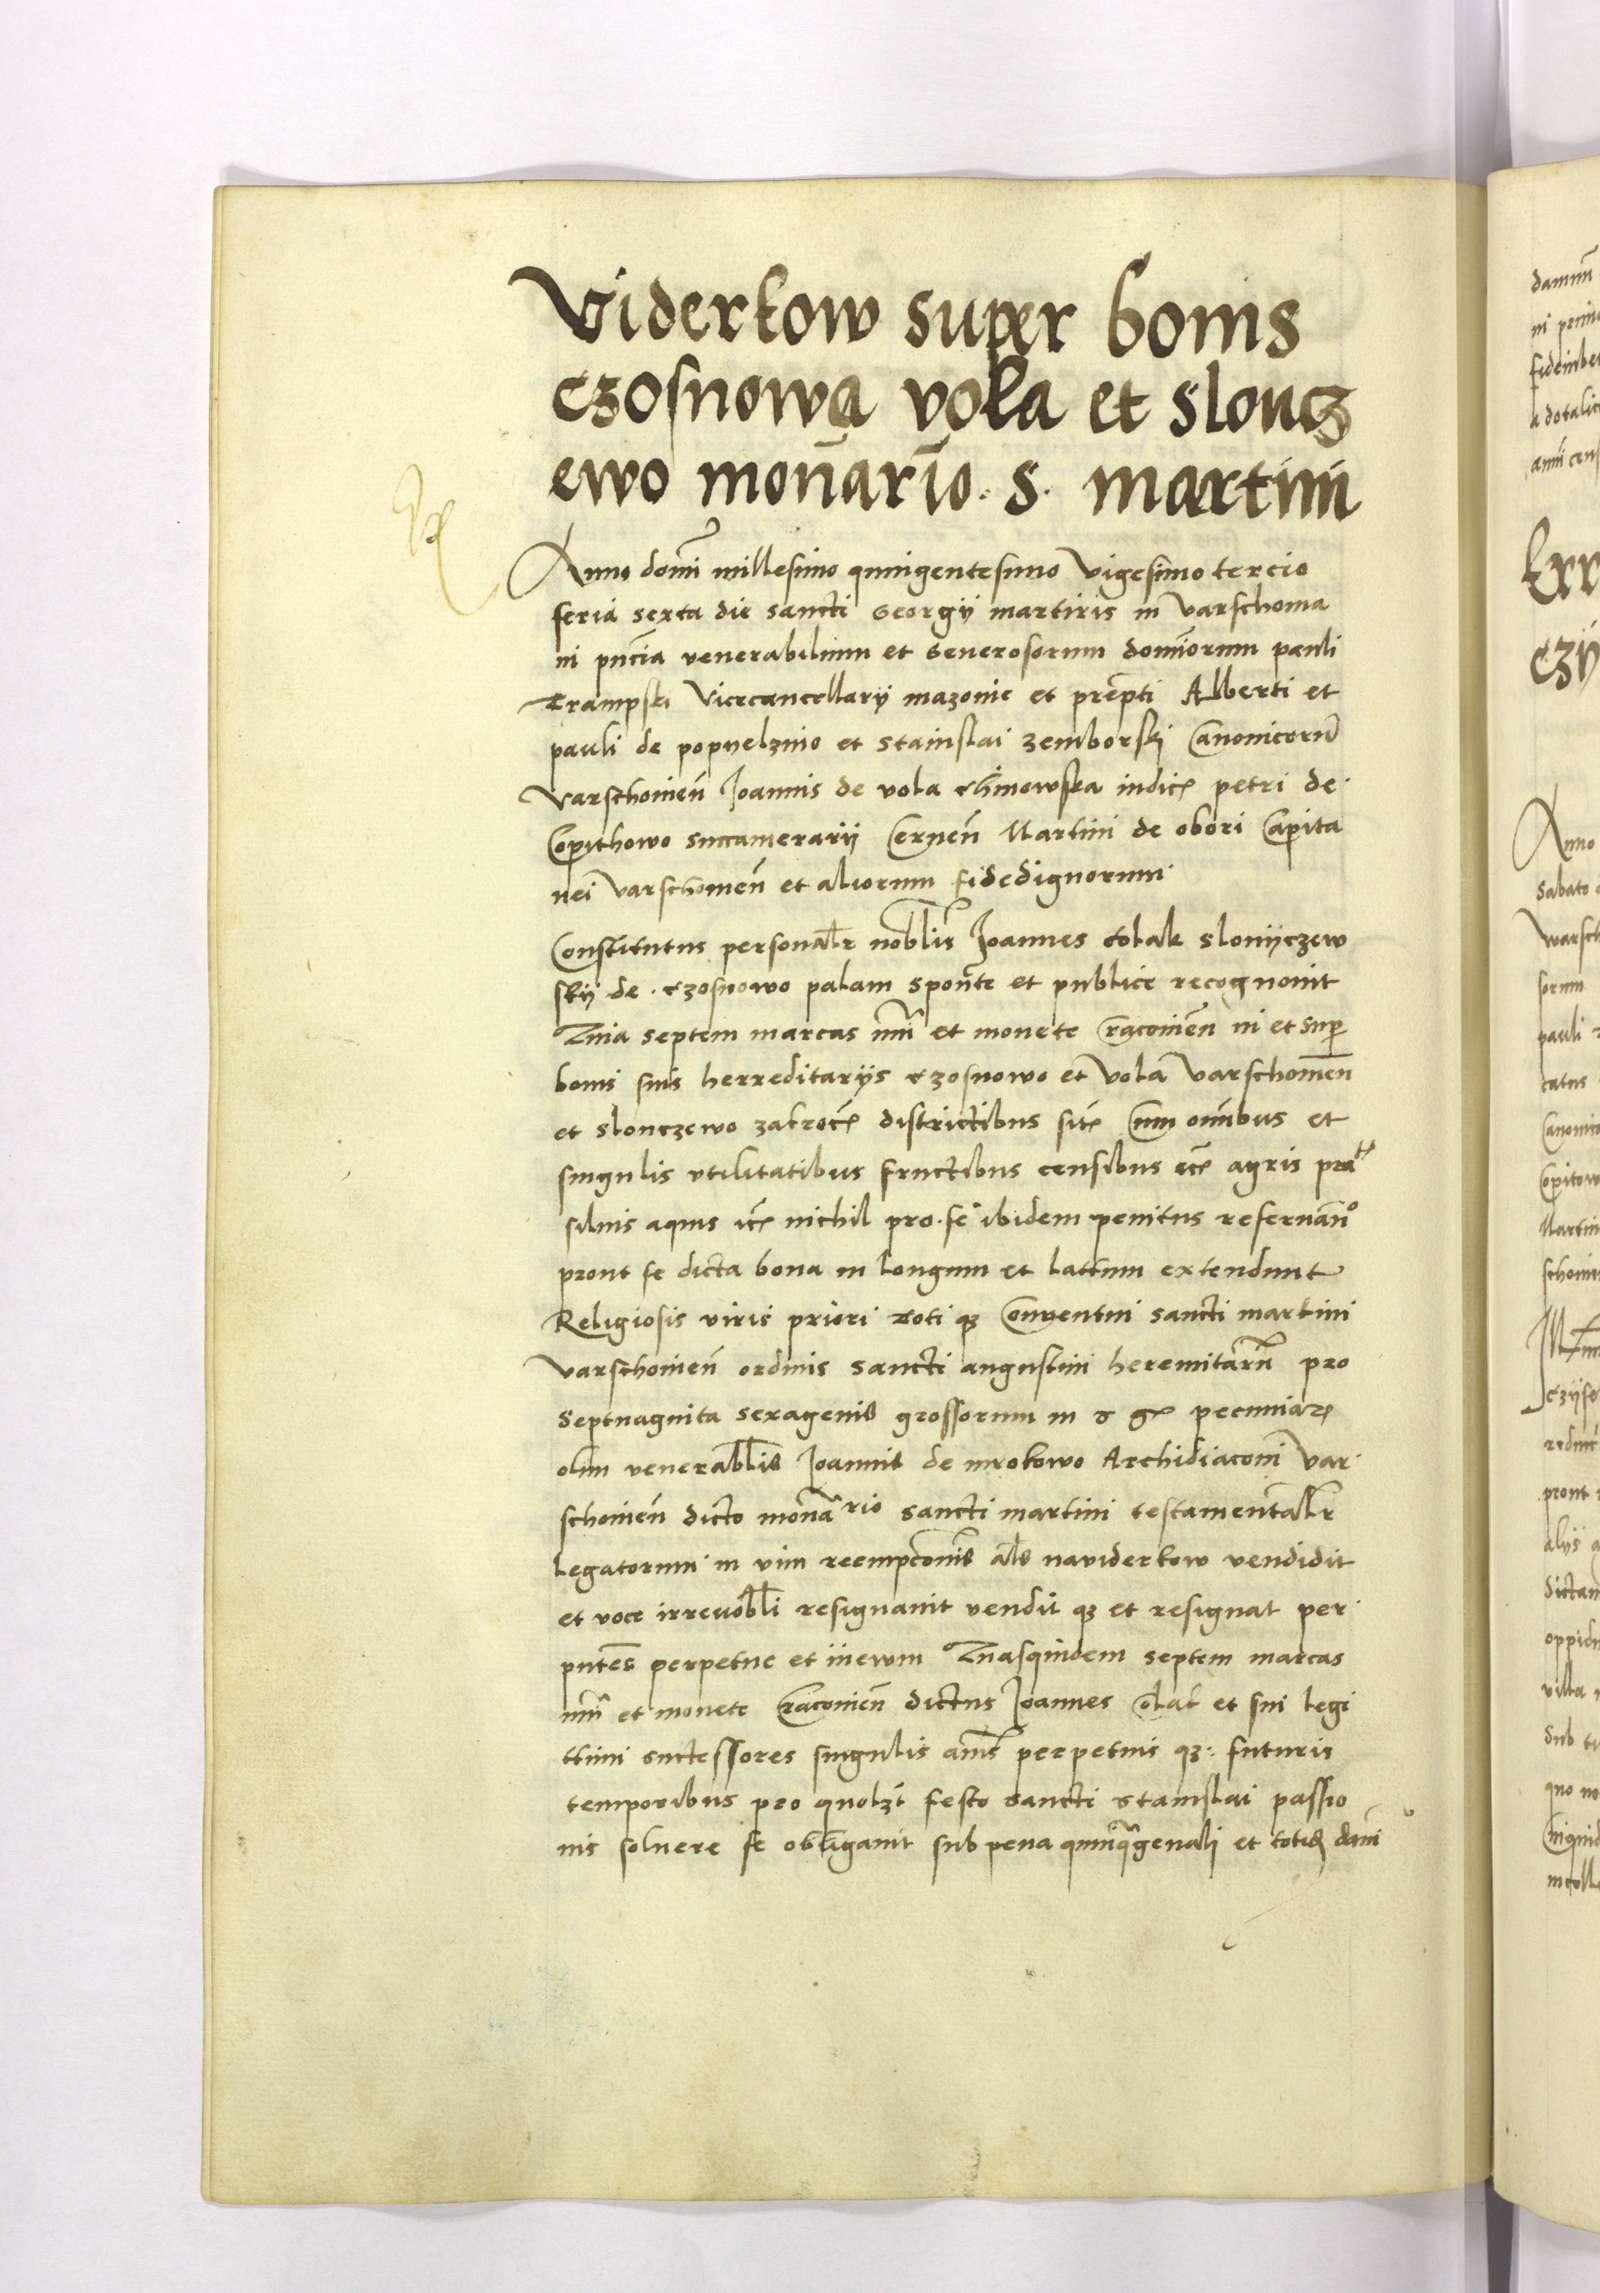 Viderkow super bonis
czosnowa vola et sloncz
ewo monario. s. martini
Anno domi millesimo quingentesimo Vigesimo tercio
feria sexta die sancti Georgij martiris in Varschouia
in pncia venerabilium et Generosorum dominorum pauli
Vicecancellarij mazouie et prepti Alberti et
pauli de popyelznio et stanislai zemborski Canonicorum
Varschouien Joannis de vola chinowska iudice petri de
Copithowo succamerarij Cernen Martini de obori Capita
nei Varschouien et aliorum fidedignorum
Constitutus personalr noblis Joannes Colak slonijczew
skij de czosnowo palam sponte et publice recognouit
Quia septem marcas nuri et monete racouien in et super
bonis suis herreditarijs czosnowo et Vola Varschouien
et slonczewo zakroce districtibus site Cum omnibus et
singulis vtilitatibus fructibus censibus etc agris prat
siluis aquis etc nichil pro se ibidem penitus reseruando
prout se dicta bona in longum et lattum extendunt
Religiosis viris priori totique Conuentui sancti martini
Varschouien ordinis sancti augustini heremitarum pro
septuaginta sexagenis grossorum in pecuniare
olim venerablis Joannis de mrokowo Archidiaconi Var
schouien dicto monario sancti martini testamentalr
legatorum in vim reempconis als navidertow vendidit
et voce irreuobli resignauit vendit que et resignat per
pntes perpetue et ineuum Quasquidem septem marcas
nuri et monete racouien dictus Joannes Colak et sui legi
ttimi suctessores singulis annis perpetuis que futuris
temporibus pro quolzt festo sancti stanislai passio
nis soluere se obligauit sub pena quinquagenali et totide dami